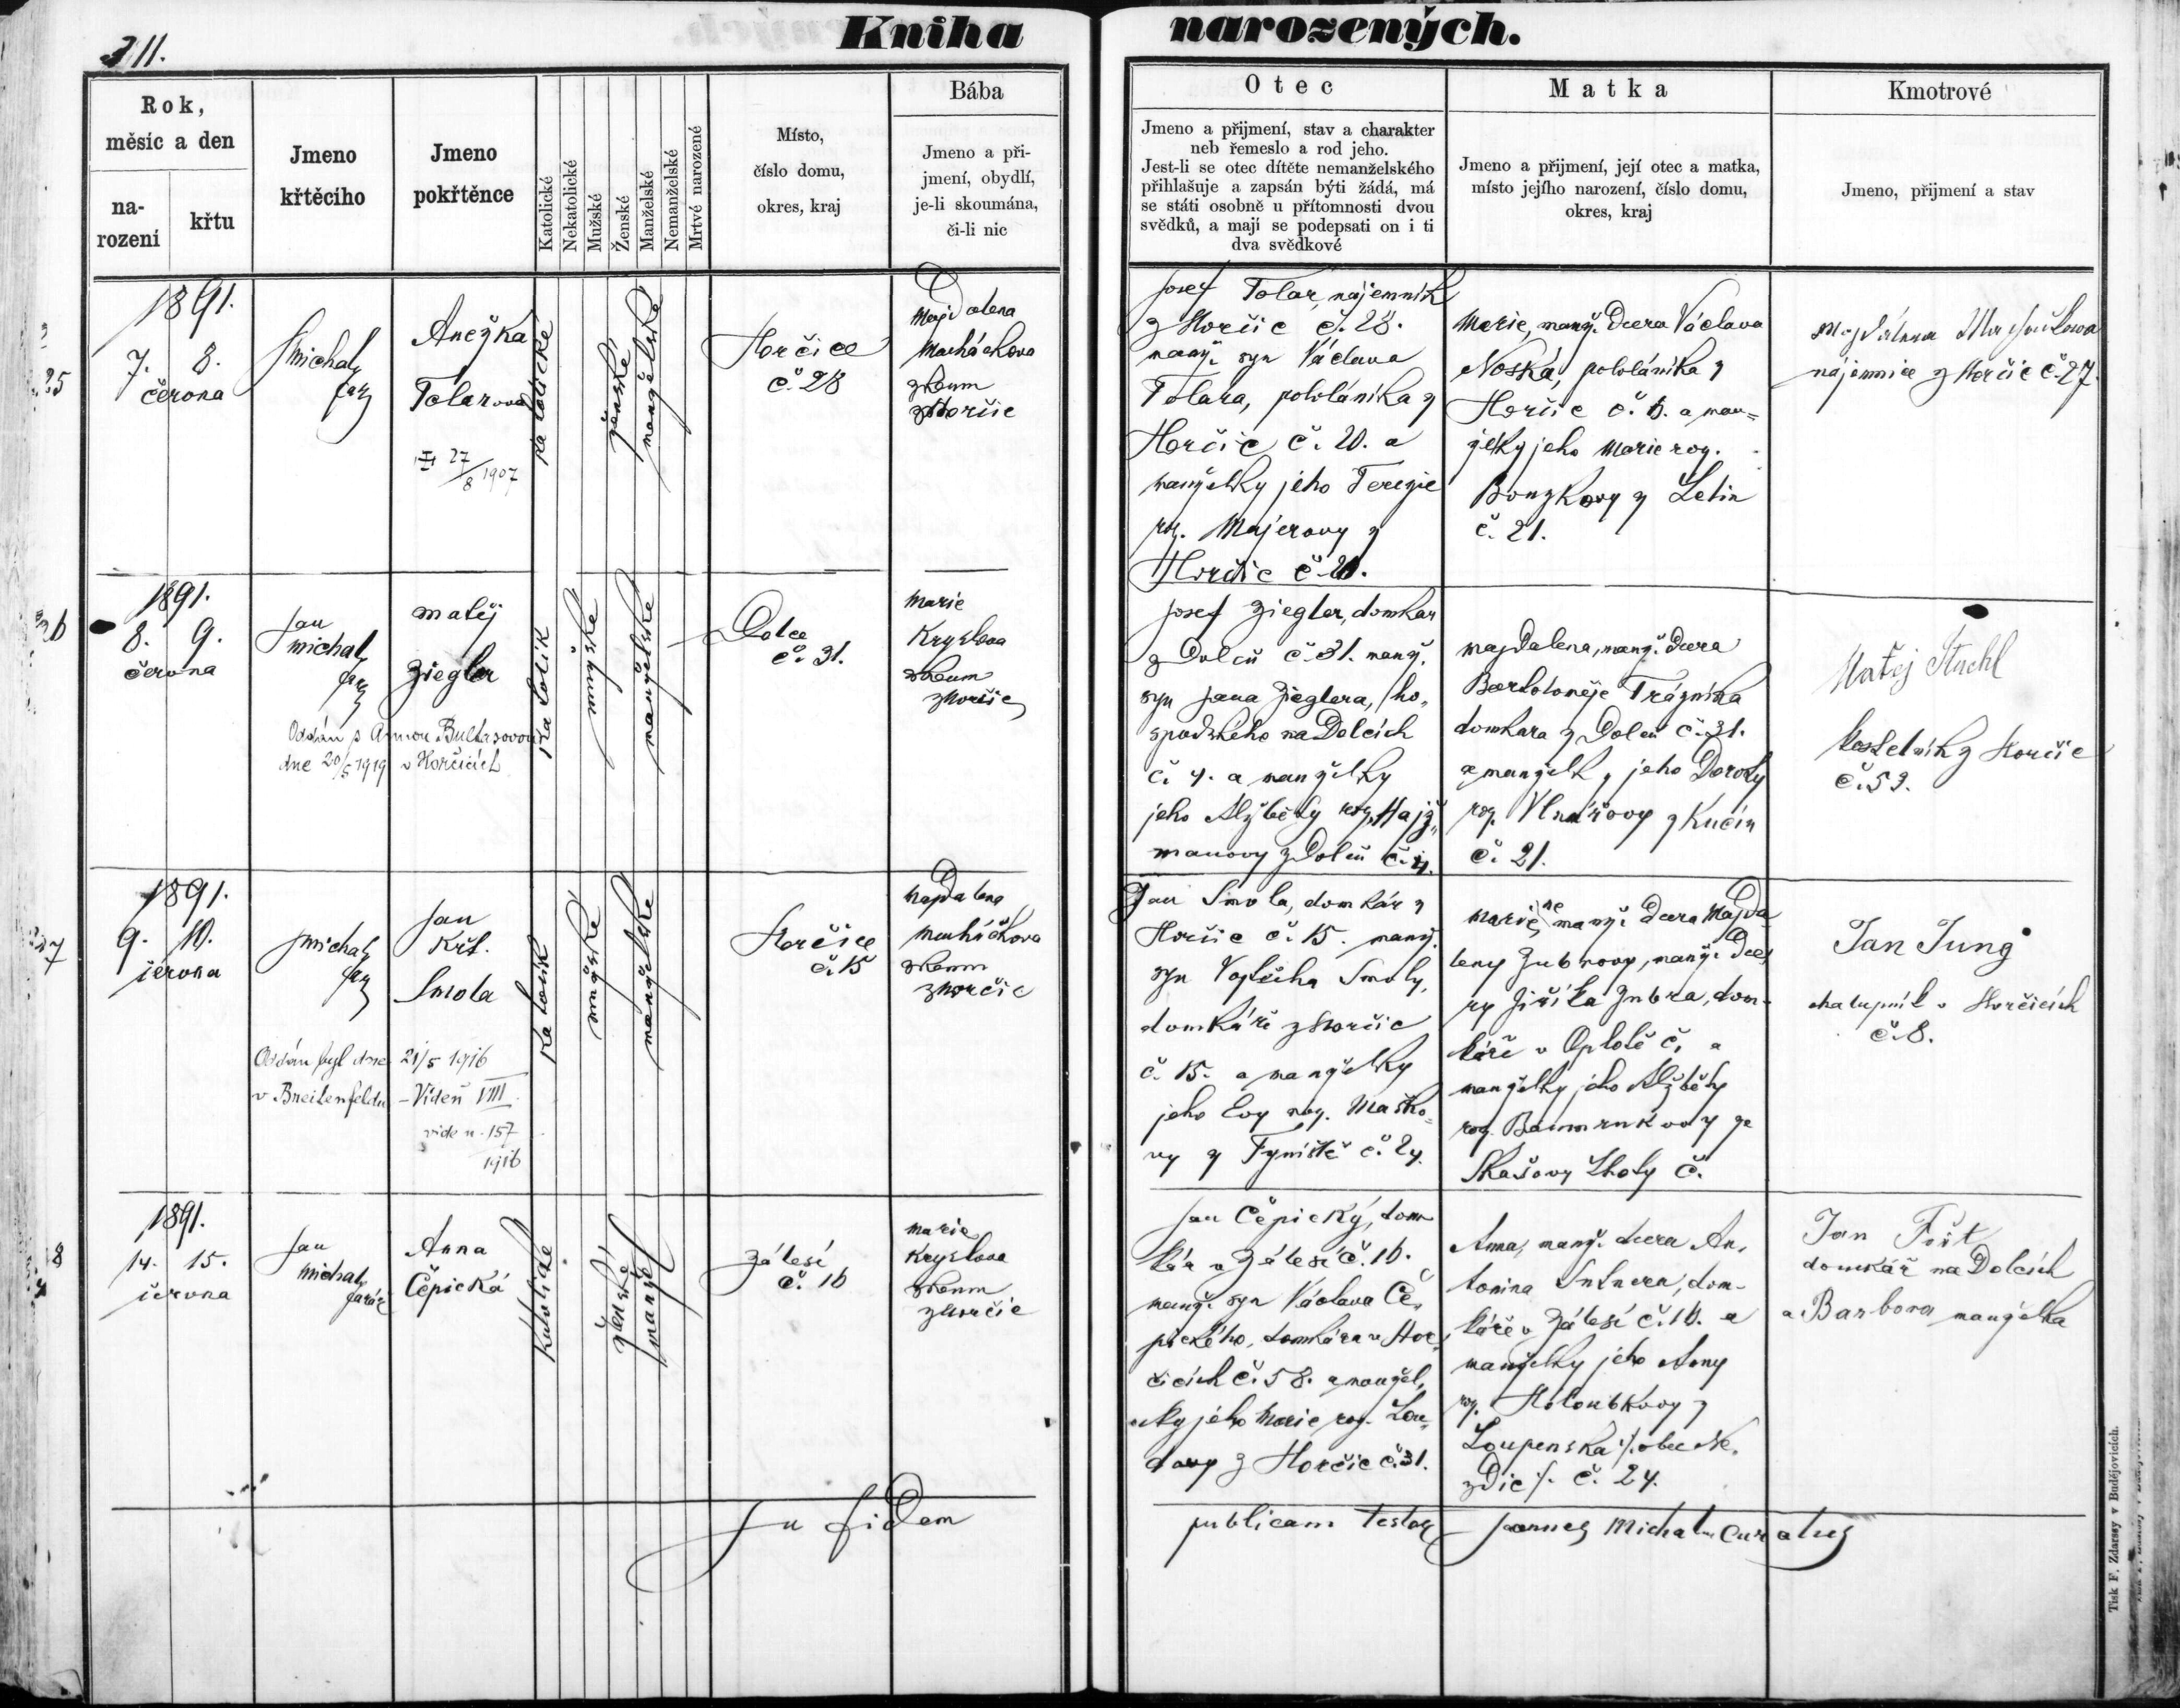 311.
Kniha narozených.
Rok,
měsíc a den
na-
rození
křtu
Jmeno
křtěcího
Jmeno
pokřtěnce
Katolické
Nekatolické
Mužské
Ženské
Manželské
Nemanželské
Mrtvé narozené
Místo,
číslo domu,
okres, kraj
Bába
Jmeno a při-
jmení, obydlí,
je-li skoumána,
či-li nic
Otec
Jmeno a přijmení, stav a charakter
neb řemeslo a rod jeho.
Jest-li se otec dítěte nemanželského
přihlašuje a zapsán býti žádá, má
se státi osobně u přítomnosti dvou
svědků, a mají se podepsati on i ti
dva svědkové
Matka
Jmeno a přijmení, její otec a matka,
místo jejího narození, číslo domu,
okres, kraj
Kmotrové
Jmeno, přijmení a stav
25
1891.
7. 8.
června
Michal
far
Anežka
Tolarova
27/8 1907
katolické
ženské
manželské
Horčice
č. 28
Magdalena
Macháčkova
zkoum
z Horčic
Josef Tolar, nájemník
z Horčic č. 28.
manž. syn Václava
Tolara, pololáníka z
Horčic č. 20. a
manželky jeho Terezie
roz. Majerovy z
Horčic č. 20.
Marie, manž. dcera Václava
Noska, pololáníka z
Horčic č. 6. a man=
želky jeho Marie roz.
Bouzkovy z Letin
č. 21.
nájemnice z Horčic č. 27.
26
1891.
8. 9.
června
Jan
Michal
far
Matěj
Ziegler
Oddán s Annou Bultasovou
dne 20/5 1919 v Horčicích
katolik
mužské
manželské
Dolce
č. 31.
Marie
Kryslova
zkoum
z Horčic
Josef Ziegler, domkar
z Dolců č. 31. manž.
syn Jana Zieglera, ho„
spodského na Dolcích
č. 4. a manželky
jeho Alžběty roz. Hajž„
manovy z Dolců č. 4.
Magdalena, manž. dcera
Bartoloměje Trázníka
domkara z Dolců č. 31.
a manželky jeho Doroty
roz. Vlnařovy z Kučín
č. 21.
Matěj Stuchl
kostelník z Horčic
č. 53.
27
1891.
9. 10.
června
Michal
far
Jan
Křt.
Smola
Oddán byl dne 21/5 1916
v Breitenfeldu – Vídeň VIII
vide n. 157
1916
katolik
mužské
manželské
Horčice
č. 15
Magdalena
Macháčkova
zkoum
z Horčic
Jan Smola, domkár z
Horčic č. 15. manž.
syn Vojtěcha Smoly,
domkáře z Horčic
č. 15. a manželky
jeho Evy roz. Maško„
vy z Tyniště č. 24.
Marie, ne manž. dcera Magda
leny Zubrovy, manž. dce„
ry Jiříka Zubra, dom-
káře v Oplotě č. a
manželky jeho Alžběty
roz. Bammrukovy ze
Skašovy Lhoty č.
Jan Jung
chalupník v Horčicích
č. 8.
8
1891.
14. 15.
června
Jan
Michal
farář
Anna
Čepická
Katolické
ženské
manžel
Zálesí
č. 16
Marie
Kryslova
zkoum
z Horčic
Jan Čepický, dom
kár v Zálesí č. 16.
manž. syn Václava Če„
pického, domkára v Hor„
čicích č. 58. a manžel„
ky jeho Marie roz. Lou„
dovy z Horčic č. 31.
Anna, manž. dcera An„
tonina Sutnera, dom-
káře v Zálesí č. 10. a
manželky jeho Anny
roz. Holoubkovy z
Loupenska /. obec Ne„
zdic /. č. 24.
Jan Fořt
domkář na Dolcích
a Barbora manželka
In fidem publicam testor Joannes Michal Curatus
Tisk F. Zdarssy v Budějovicích.